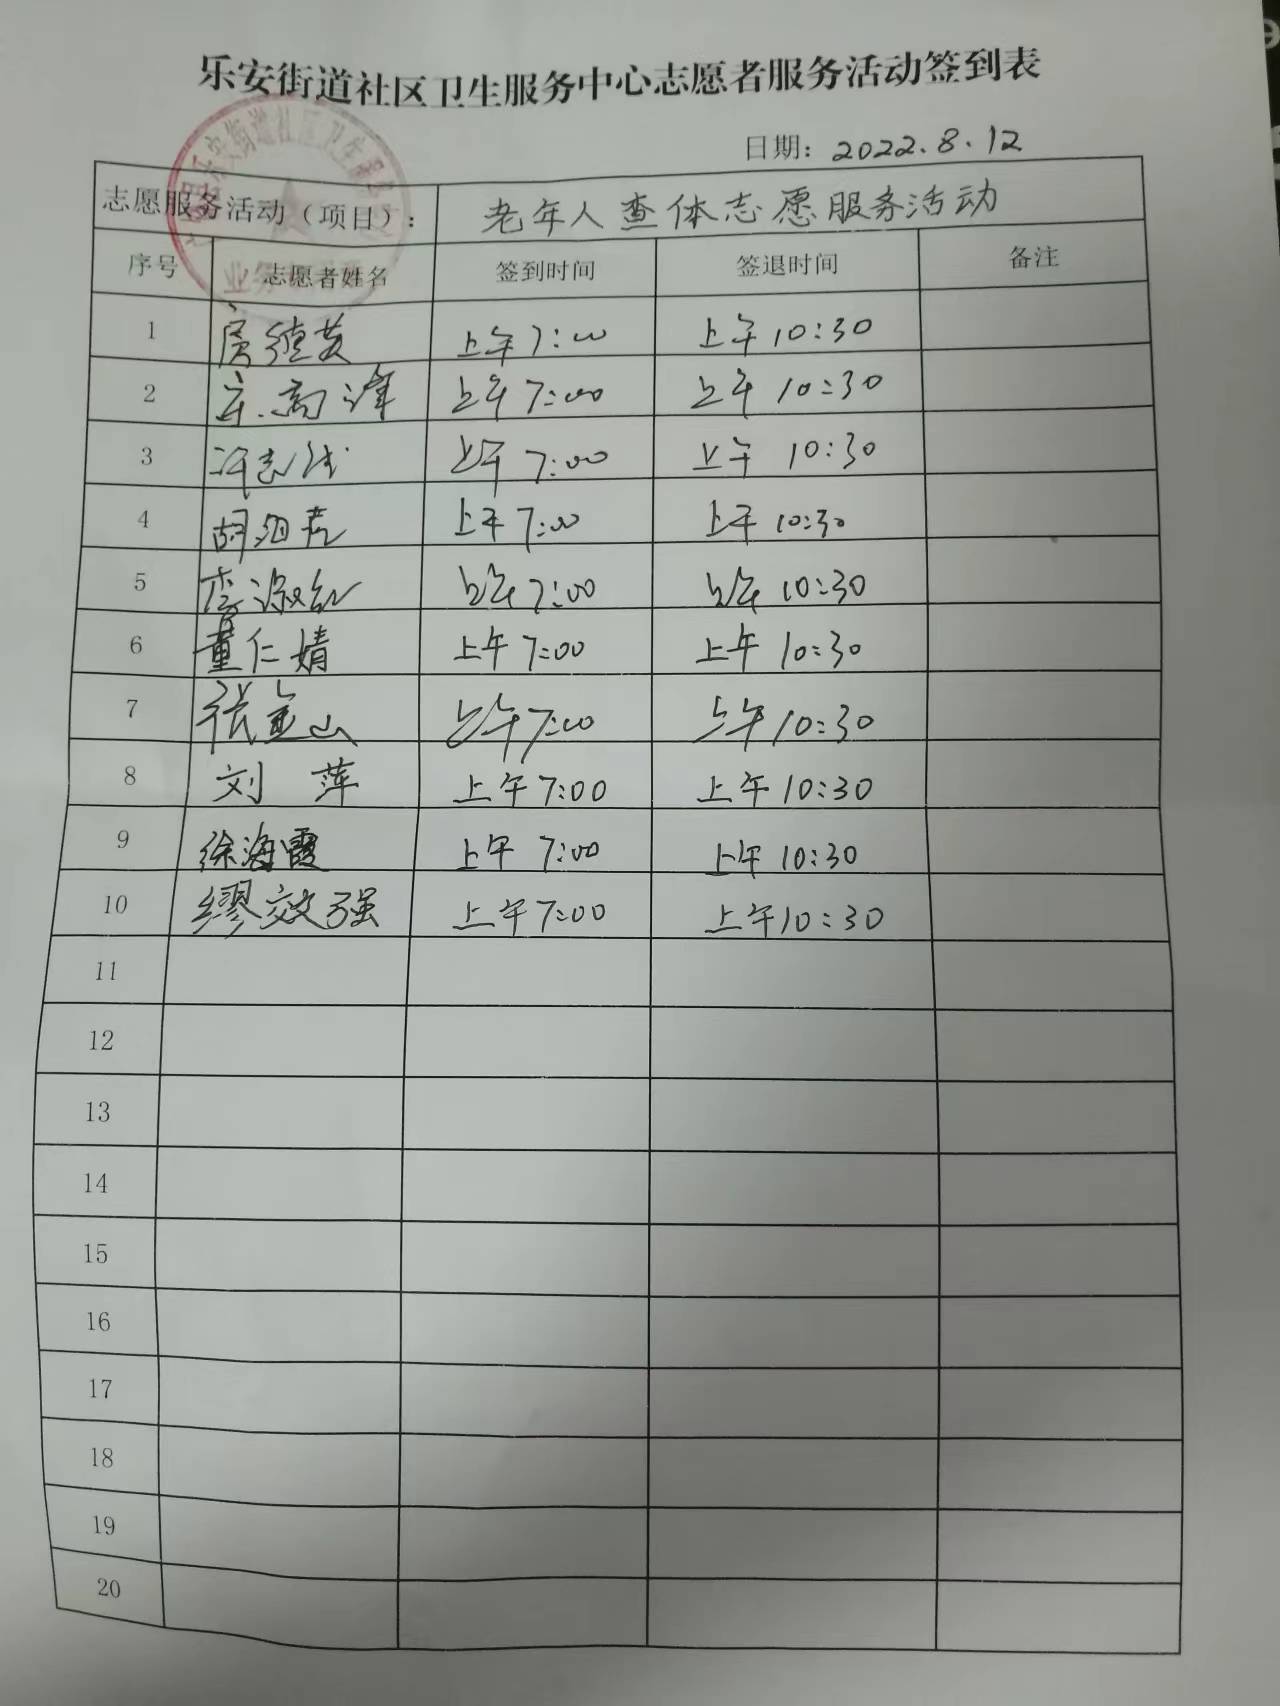 乐安街道社区卫生服务中心志愿者服务活动签到表
日期：2022.8.12
志愿服务活动（项目）： 老年人查体志愿服务活动
序号 志愿者姓名 签到时间 签退时间 备注
1 上午7:00 上午10:30
2 上午7:00 上午10:30
3 上午7:00 上午10:30
4 上午7:00 上午10:30
5 李淑红 上午7:00 上午10:30
6 董仁婧 上午7:00 上午10:30
7 张金山 上午7:00 上午10:30
8 刘萍 上午7:00 上午10:30
9 徐海霞 上午7:00 上午10:30
10 缪效强 上午7:00 上午10:30
11
12
13
14
15
16
17
18
19
20